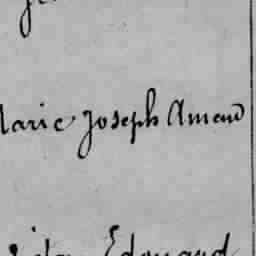 Marie Joseph Amand
Edouard